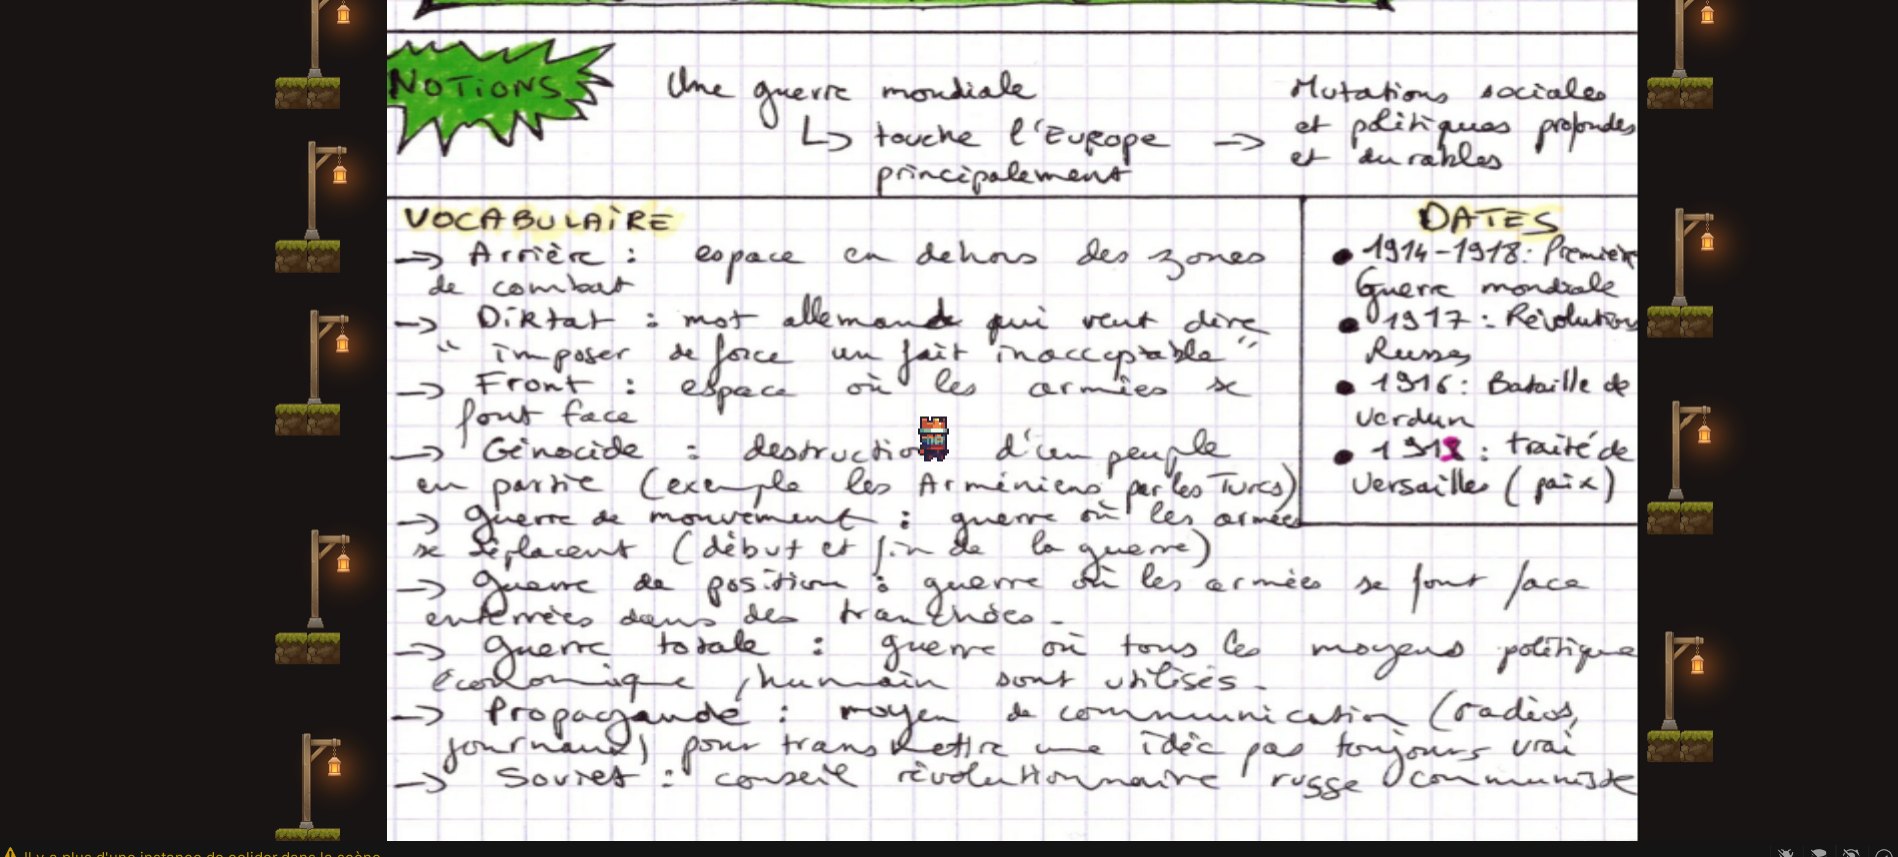 NOTIONS
Une guerre mondiale
↳ touche l'Europe
principalement
→ Mutations sociales
et politiques profondes
et durables
VOCABULAIRE
→ Arrière : espace en dehors des zones
de combat
→ Diktat : mot allemand qui veut dire
" imposer de force un fait inacceptable "
→ Front : espace où les armées se
font face
→ Génocide : destruction d'un peuple
en partie (exemple les Arméniens par les Turcs)
→ guerre de mouvement : guerre où les armées
se déplacent (début et fin de la guerre)
→ guerre de position : guerre où les armées se font face
enterrées dans des tranchées.
→ guerre totale : guerre où tous les moyens politique
économique, humain sont utilisés.
→ Propagande : moyen de communication (radios,
journaux) pour transmettre une idée pas toujours vrai
→ Soviet : conseil révolutionnaire russe communiste
DATES
• 1914-1918 : Première
Guerre mondiale
• 1917 : Révolution
Russes
• 1916 : Bataille de
Verdun
• 1919 : traité de
Versailles (paix)
Il y a plus d'une instance de solider dans la scène